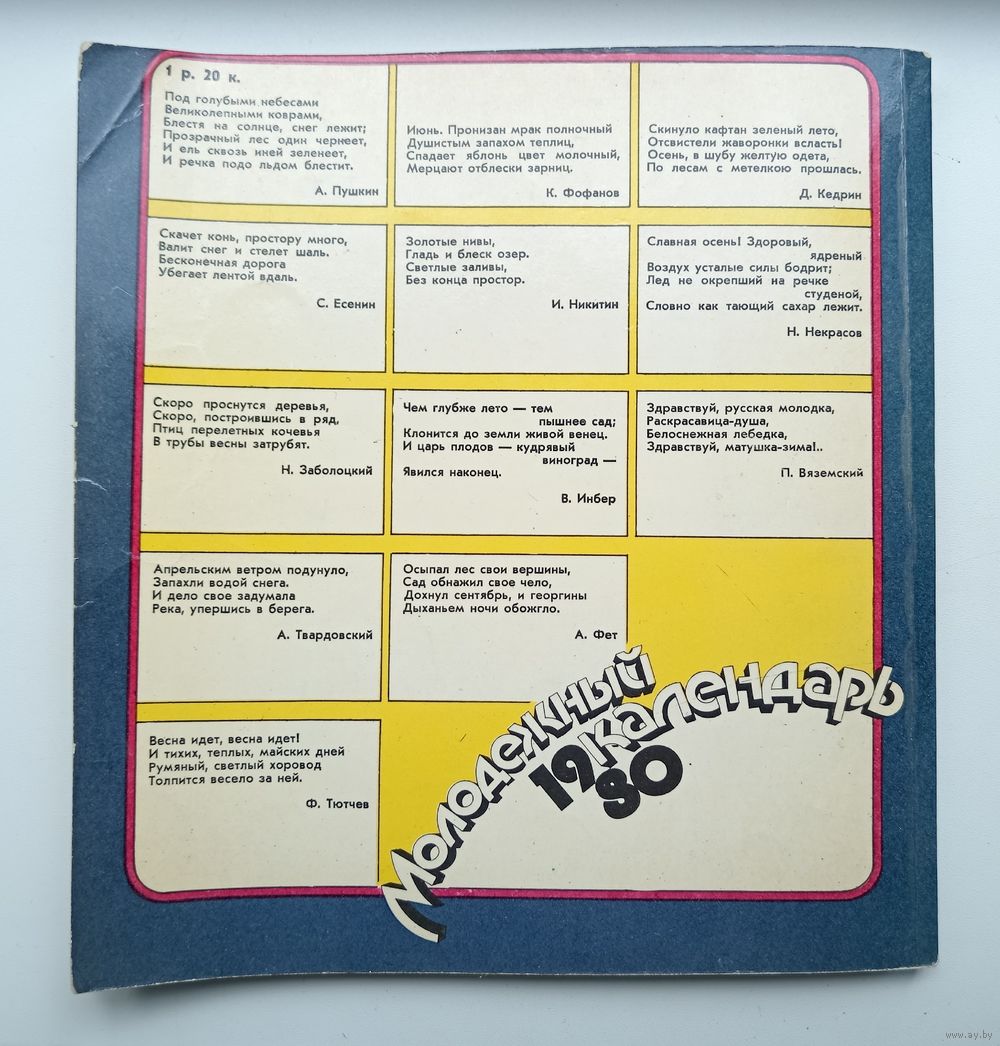 1 р. 20 к.
Под голубыми небесами
Великолепными коврами,
Блестя на солнце, снег лежит;
Прозрачный лес один чернеет,
И ель сквозь иней зеленеет,
И речка подо льдом блестит.
А. Пушкин
Скачет конь, простору много,
Валит снег и стелет шаль.
Бесконечная дорога
Убегает лентой вдаль.
С. Есенин
Скоро проснутся деревья,
Скоро, построившись в ряд,
Птиц перелетных кочевья
В трубы весны затрубят.
Н. Заболоцкий
Апрельским ветром подунуло,
Запахли водой снега.
И дело свое задумала
Река, упершись в берега.
А. Твардовский
Весна идет, весна идет!
И тихих, теплых, майских дней
Румяный, светлый хоровод
Толпится весело за ней.
Ф. Тютчев
Июнь. Пронизан мрак полночный
Душистым запахом теплиц,
Спадает яблонь цвет молочный,
Мерцают отблески зарниц.
К. Фофанов
Золотые нивы,
Гладь и блеск озер.
Светлые заливы,
Без конца простор.
И. Никитин
Чем глубже лето — тем
пышнее сад;
Клонится до земли живой венец.
И царь плодов — кудрявый
виноград —
Явился наконец.
В. Инбер
Осыпал лес свои вершины,
Сад обнажил свое чело,
Дохнул сентябрь, и георгины
Дыханьем ночи обожгло.
А. Фет
Скинуло кафтан зеленый лето,
Отсвистели жаворонки всласть!
Осень, в шубу желтую одета,
По лесам с метелкою прошлась.
Д. Кедрин
Славная осень! Здоровый,
ядреный
Воздух усталые силы бодрит;
Лед не окрепший на речке
студеной,
Словно как тающий сахар лежит.
Н. Некрасов
Здравствуй, русская молодка,
Раскрасавица-душа,
Белоснежная лебедка,
Здравствуй, матушка-зима!..
П. Вяземский
Молодежный
календарь
1980
www.ay.by